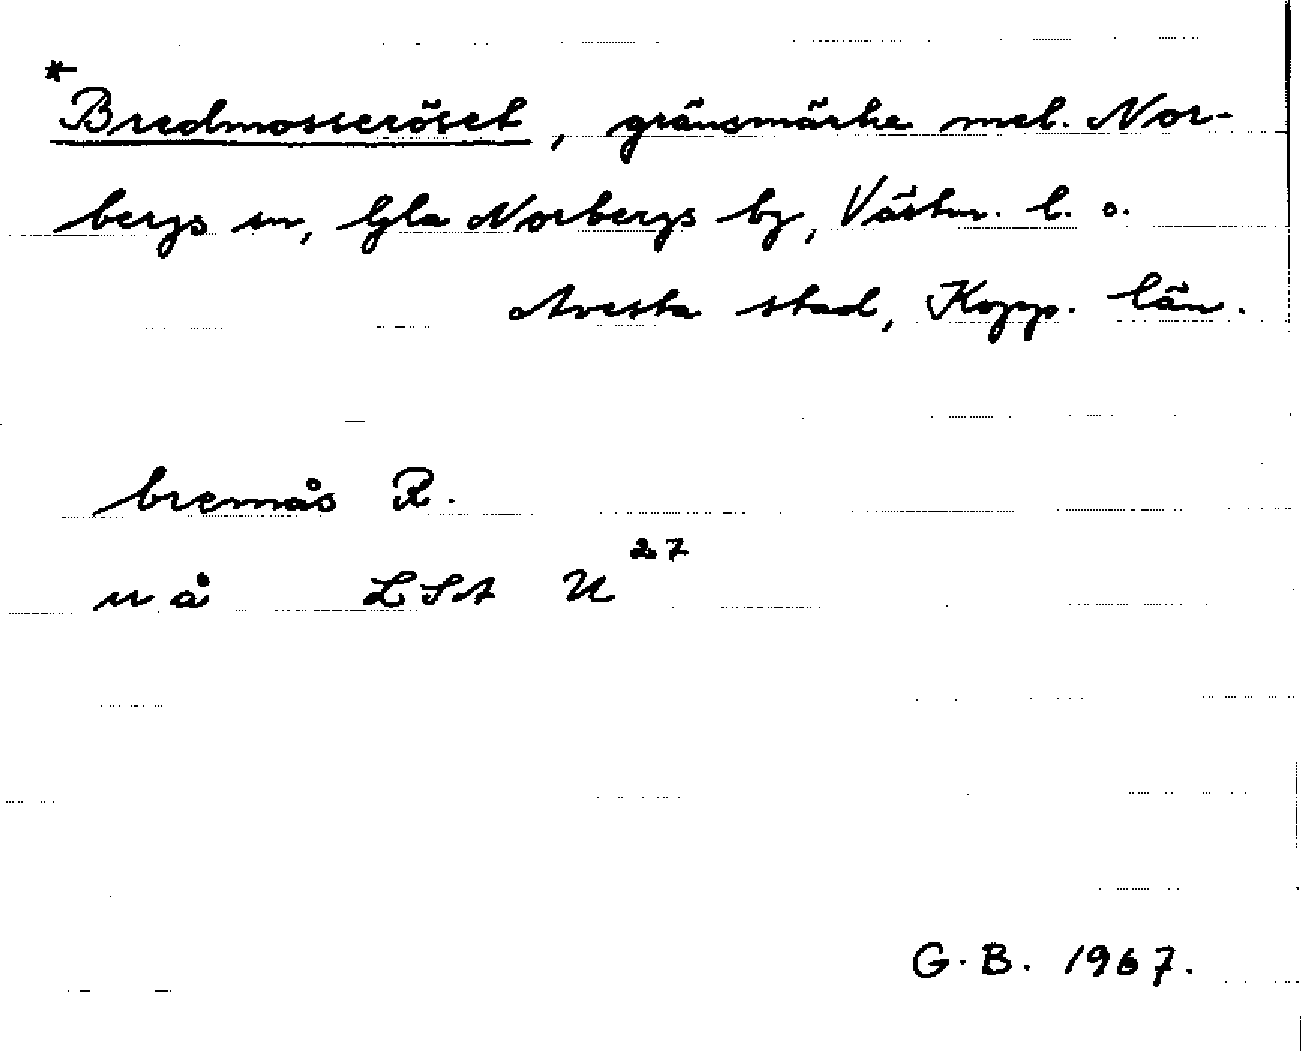 *Bredmosseröset, gränsmärke mel. Nor-
bergs sn, Gla Norbergs by, Västm. l. o.
Avesta stad, Kopp. län.
bremås R.
u å LSt U 27
G. B. 1967.